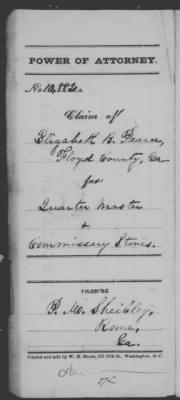 POWER OF ATTORNEY.
No 10,882
Claim of
Elizabeth B. Pearce,
Floyd County, Ga
for
Quarter Master
&
Commissary Stores.
FILED BY
P. M. Sheibley,
Rome,
Ga.
Printed and sold by W. H. Moore, 511 11th St., Washington, D. C.